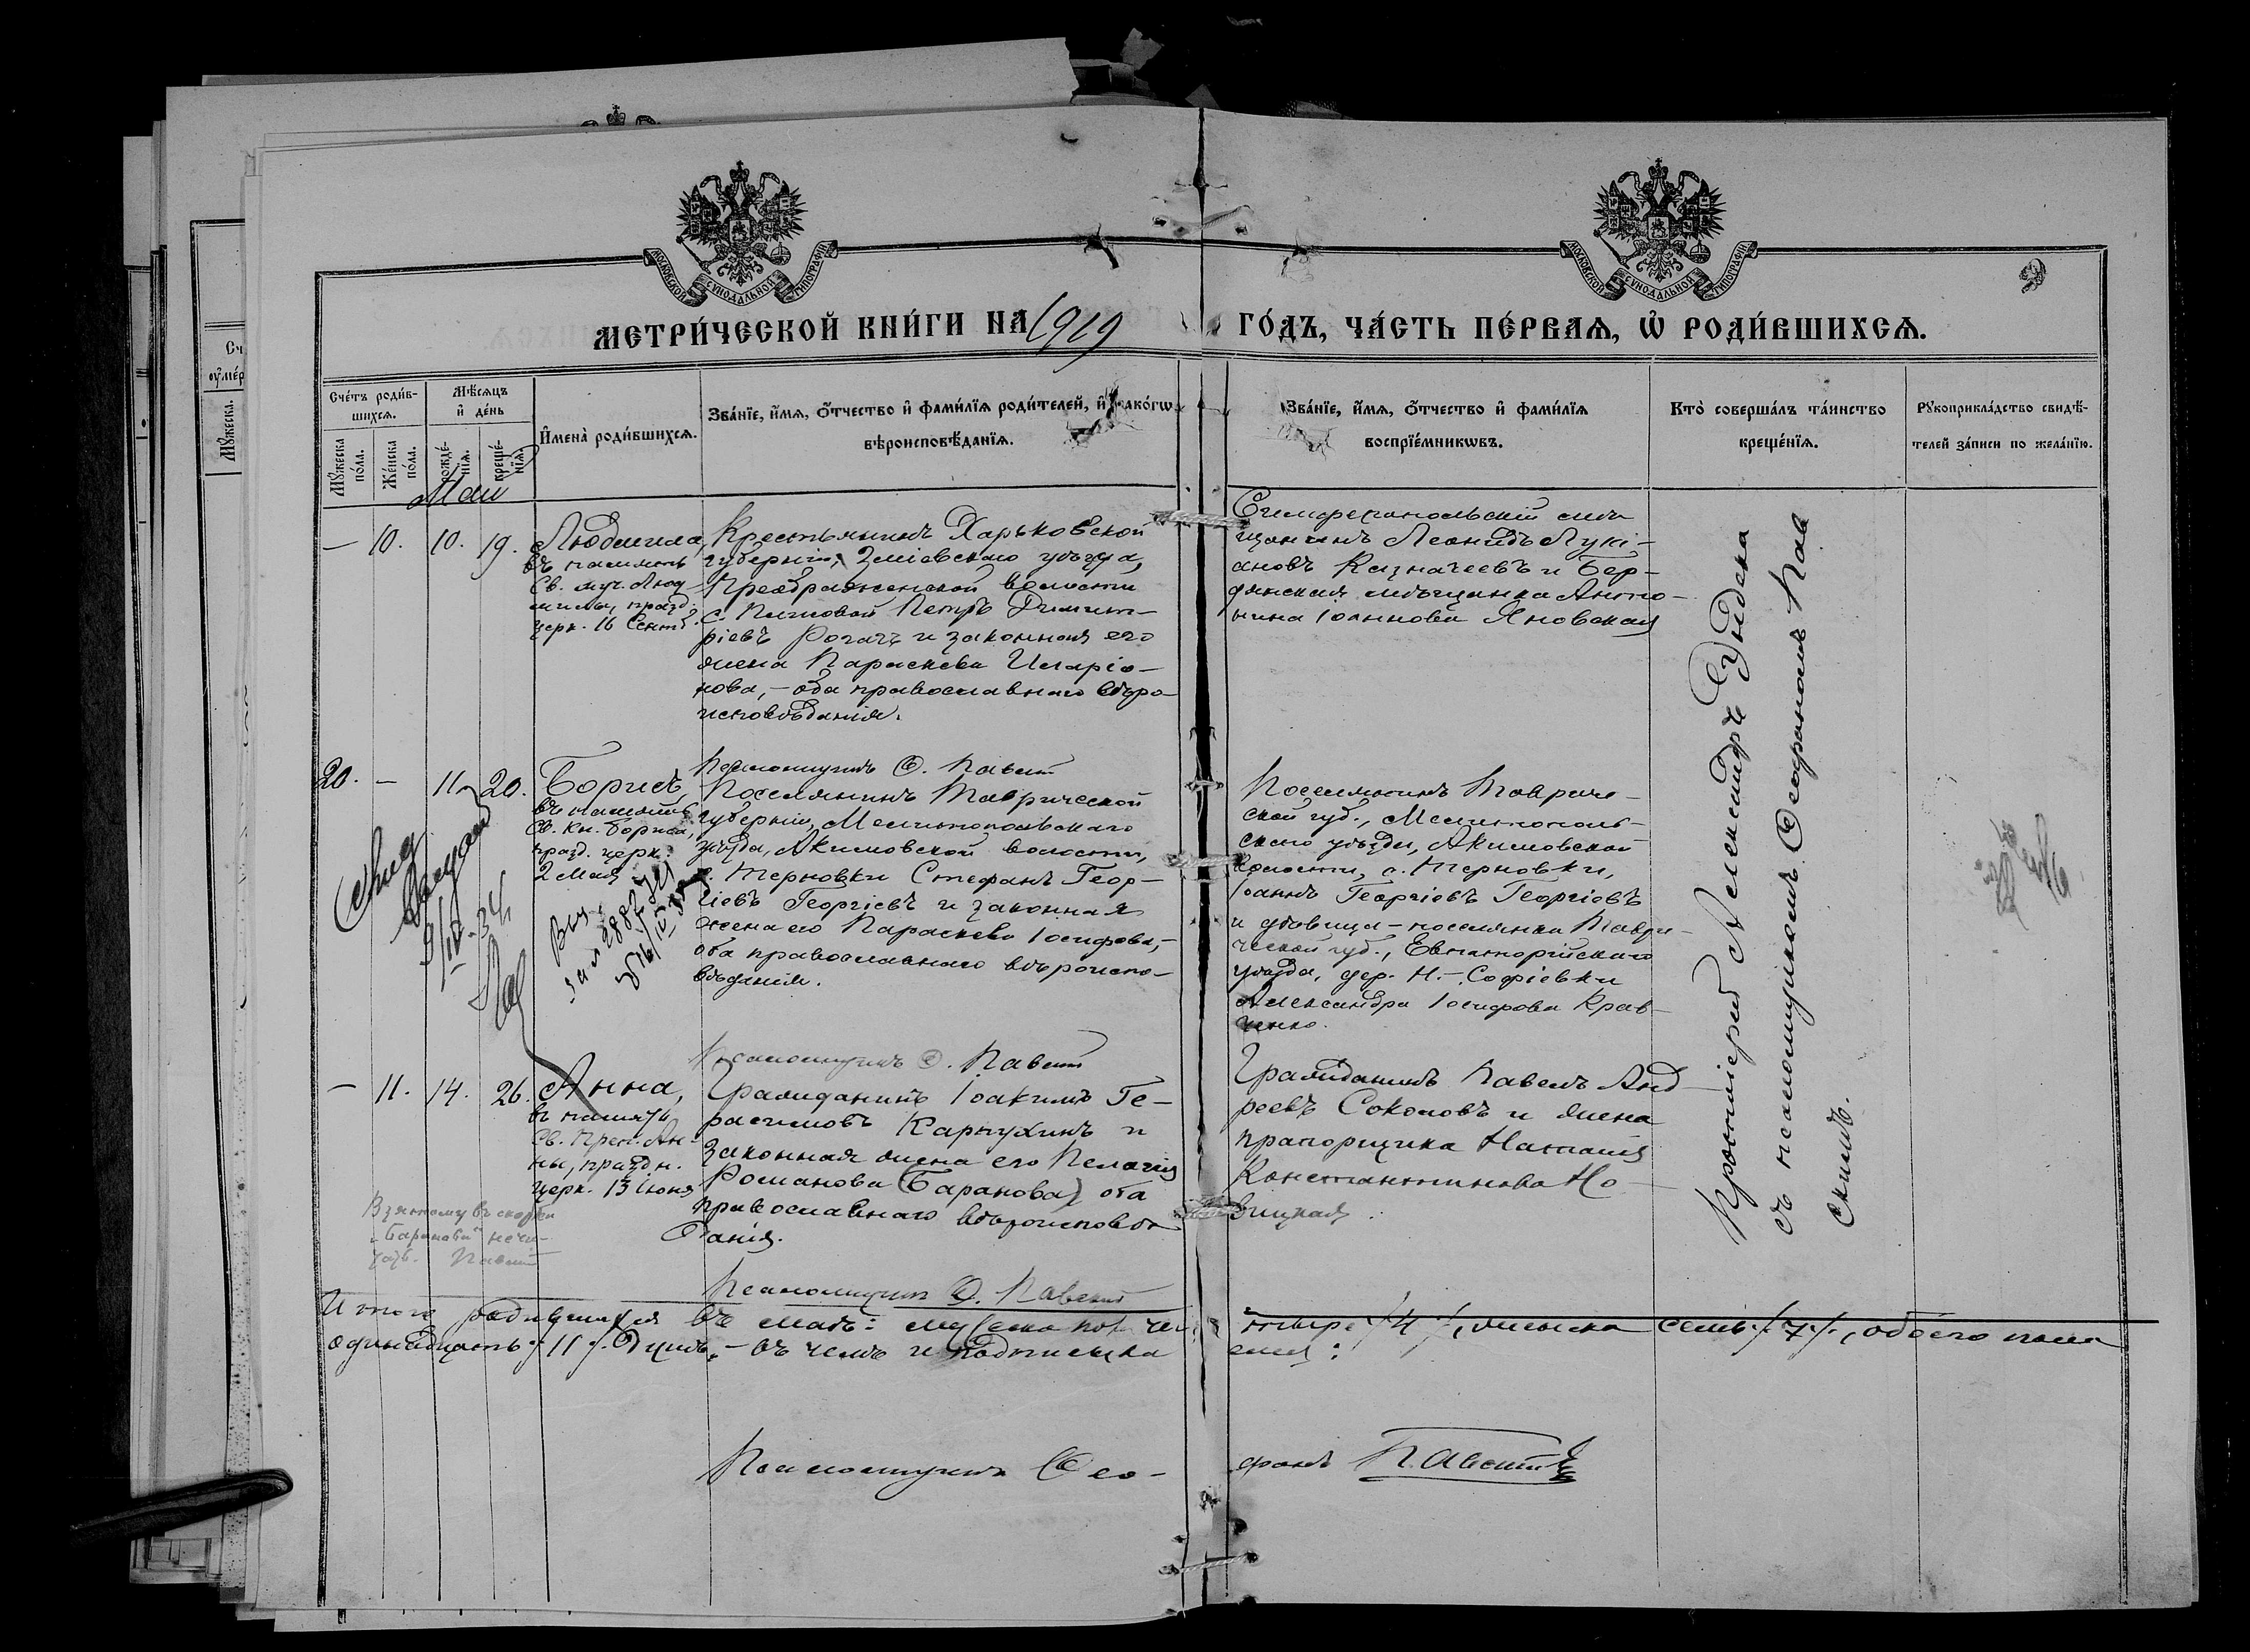 МОСКОВСКОЙ СѴНОДАЛЬНОЙ ТИПОГРАФІИ
МОСКОВСКОЙ СѴНОДАЛЬНОЙ ТИПОГРАФІИ
МЕТРИ́ЧЕСКОЙ КНИ́ГИ НА 1919 ГО́ДЪ, ЧА́СТЬ ПЕ́РВАѦ, Ѡ҆ РОДИ́ВШИХСѦ.
Сче́тъ роди́в-
шихсѧ.
Мꙋ́жеска
по́ла.
Же́нска
по́ла.
Мѣ́сѧцъ
и҆ де́нь
рожде́-
нїѧ.
креще́-
нїѧ.
И҆мена̀ роди́вшихсѧ.
Зва́нїе, и҆́мѧ, ѻ҆́тчество и҆ фами́лїѧ роди́телей, и҆ како́гѡ
вѣроисповѣ́данїѧ.
Зва́нїе, и҆́мѧ, ѻ҆́тчество и҆ фами́лїѧ
воспрїе́мникѡвъ.
Кто̀ соверша́лъ та́инство
креще́нїѧ.
Рꙋкоприкла́дство свидѣ́-
телей за́писи по жела́нїю.
Май
— 10. 10. 19.
Людмила,
въ память
Св. муч. Люд-
милы, празд.
церк. 16 Сент.
Крестьянинъ Харьковской
губерніи, Зміевскаго уѣзда,
Преображенской волости
Петръ Димит-
ріевъ Рогачъ и законная его
жена Параскева Иларіо-
нова, - оба православнаго вѣро-
исповѣданія.
Симферопольскій мѣ-
щанинъ Леонидъ Лукі-
ановъ Казначеевъ и Бер-
дянская мѣщанка Анто-
нина Іоаннова Яновская
Псаломщикъ Ѳ. Павскій
20. — 11. 20.
Борисъ,
въ память
Св. Кн. Бориса,
празд. церк.
2 Мая
Поселянинъ Таврической
губерніи, Мелитопольскаго
уѣзда, Акимовской волости,
с. Терновки Стефанъ Геор-
гіевъ Георгіевъ и законная
жена его Параскева Іосифова,-
оба православнаго вѣроиспо-
вѣданія.
Поселянинъ Тавриче-
ской губ., Мелитополь-
скаго уѣзда, Акимовской
волости, с. Терновки,
Іоаннъ Георгіевъ Георгіевъ
и дѣвица - поселянка Таври-
ческой губ., Евпаторійскаго
уѣзда, дер. Н.-Софіевки
Александра Іосифова Крав-
ченко.
Псаломщикъ Ѳ. Павскій
— 11. 14. 26.
Анна,
въ память
Св. Преп. Ан-
ны, праздн.
церк. 13 Іюня
Гражданинъ Іоакимъ Ге-
расимовъ Карпухинъ и
законная жена его Пелагія
Романова (Баранова), оба
православнаго вѣроисповѣ-
данія.
Гражданинъ Павелъ Анд-
реевъ Соколовъ и жена
прапорщика Наталія
Константинова Но-
вицкая.
Взятому въ скобки
„Баранова" не чи-
тать. Павскій
Псаломщикъ Ѳ. Павскій
Протоіерей Александръ
съ псаломщикомъ Ѳеофаномъ Пав
скимъ.
Итого родившихся въ маѣ: мужеска пола четыре /4/, женска семь /7/, обоего пола
одинадцать /11/ душъ, - въ чемъ и подписыва
емся:
Псаломщикъ Ѳео-
фанъ Павскій
Сч
Мꙋ́жеска.